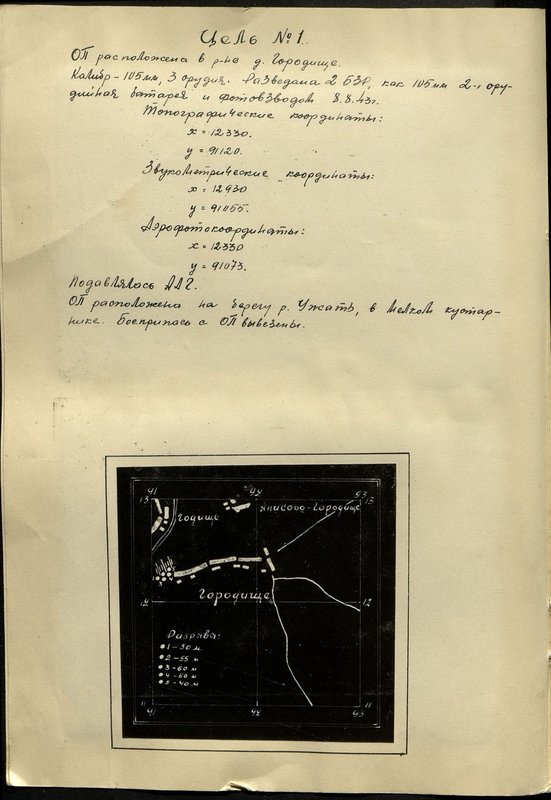 Цель №1.
ОП расположена в р-не д. Городище.
Калибр-105мм, 3 орудия. Разведана 2 БЗР, как 105мм 2-х ору-
дийная батарея и фотовзводом 8.8.43г.
Топографические координаты:
x = 12330.
y = 91120.
Звукометрические координаты:
x = 12930
y = 91055.
Аэрофотокоординаты:
x = 12330
y = 91073.
Подавлялась ААГ.
ОП расположена на берегу р. Ужать, в мелком кустар-
нике. Боеприпасы с ОП вывезены.
91 92 93
13 13
Годище Анисово-Городище
Городище
12 12
Разрывы:
1-50 м
2-55 м
3-60 м
4-60 м
5-40 м
11 11
91 92 93